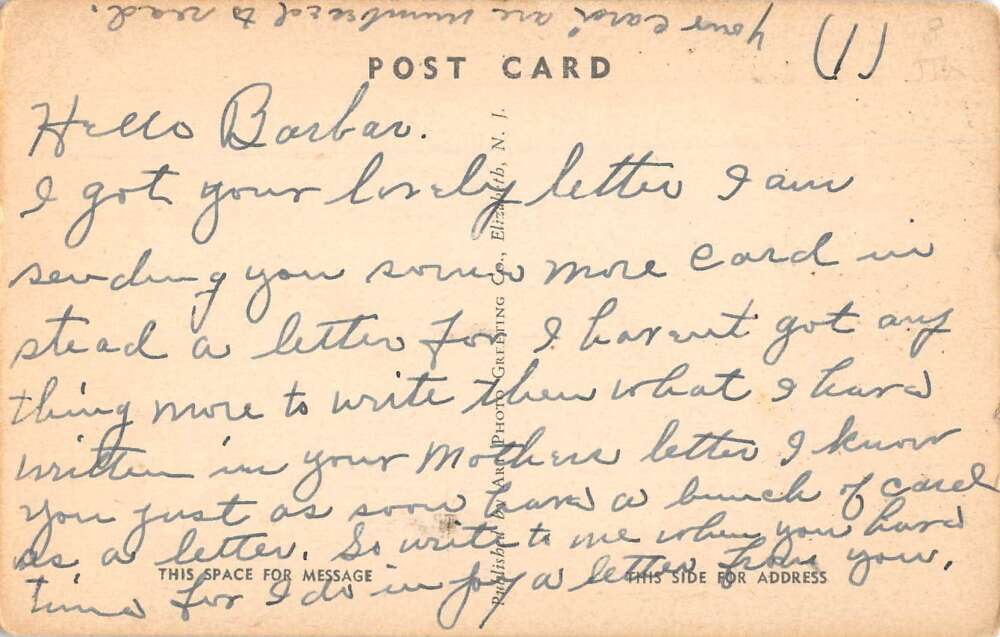 your card are numbered to read.
(1)
POST CARD
Hello Barbar.
I got your lovely letter I am
sending you some more card in
stead a letter for I havent got any
thing more to write then what I have
written in your Mothers letter I know
you just as soon have a bunch of card
as a letter. So write to me when you have
time for I do in joy a letter from you.
THIS SPACE FOR MESSAGE
THIS SIDE FOR ADDRESS
Published by ART PHOTO GREETING CO., Elizabeth, N. J.